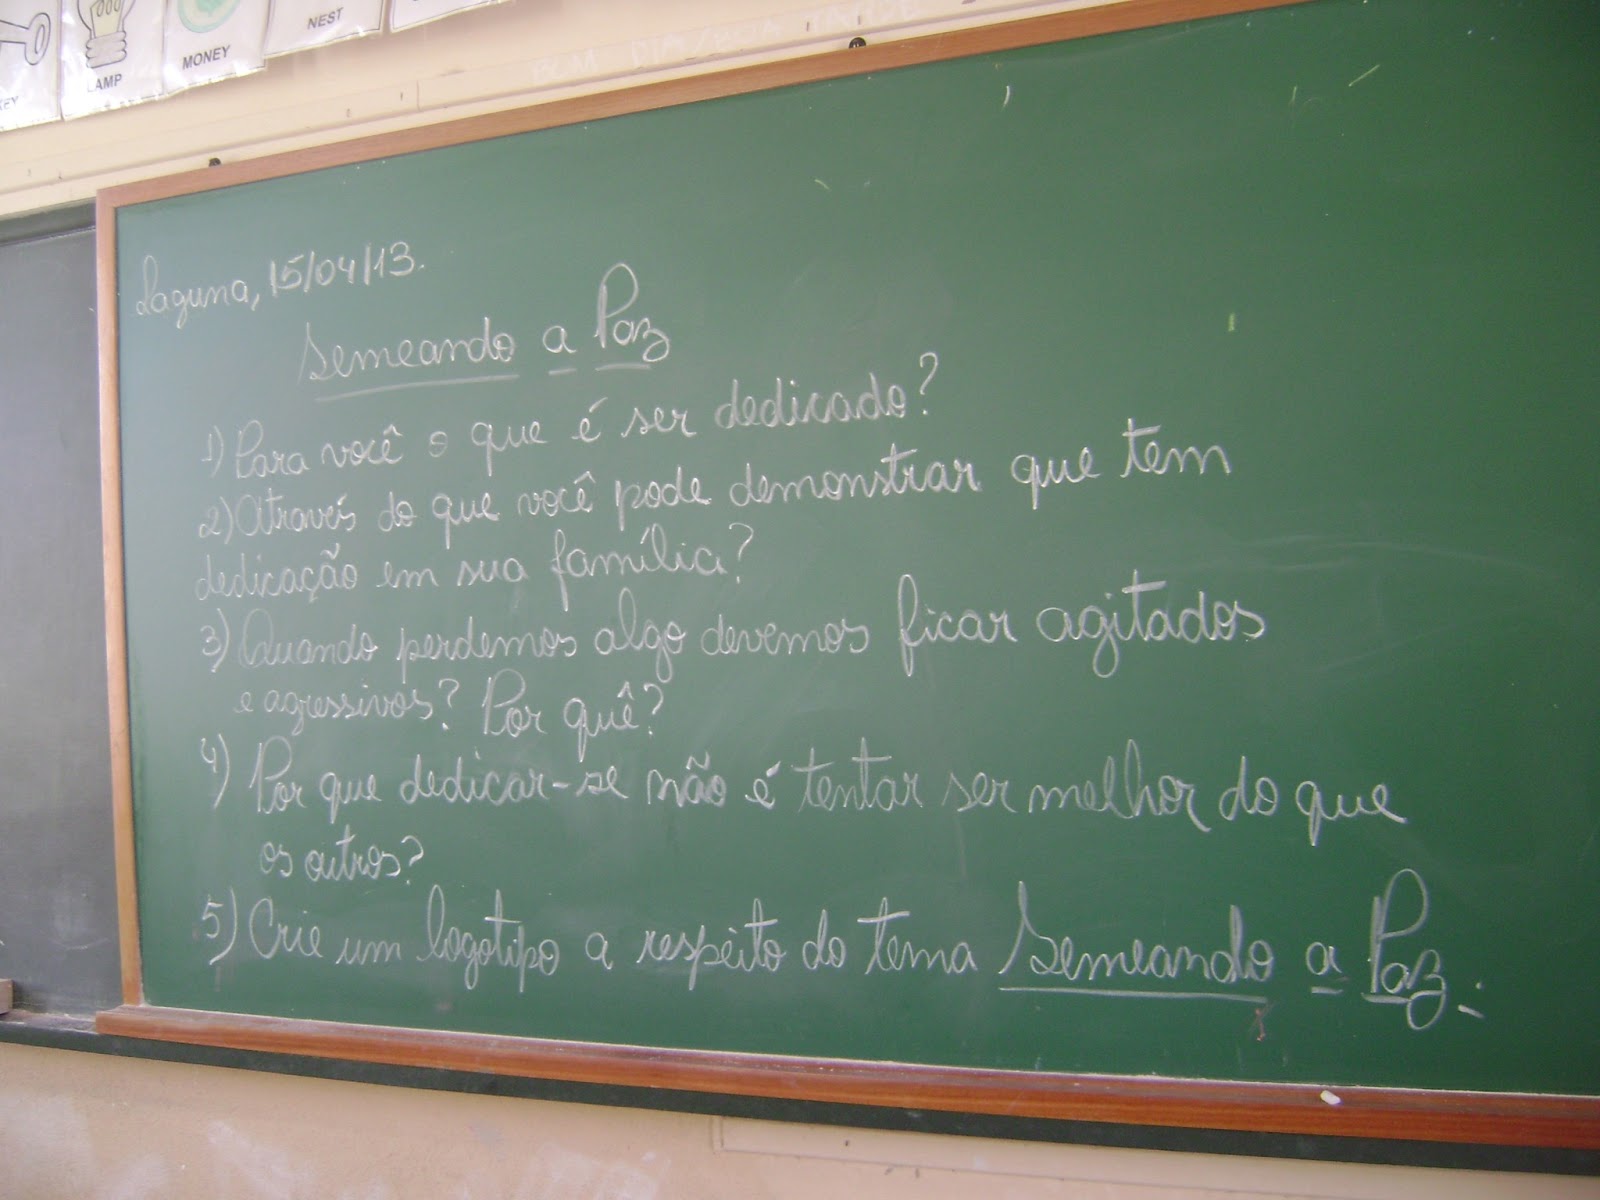 KEY
LAMP
MONEY
NEST
Laguna, 15/04/13.
Semeando a Paz
1) Para você o que é ser dedicado?
2) Através do que você pode demonstrar que tem
dedicação em sua família?
3) Quando perdemos algo devemos ficar agitados
e agressivos? Por quê?
4) Por que dedicar-se não é tentar ser melhor do que
os outros?
5) Crie um logotipo a respeito do tema Semeando a Paz.